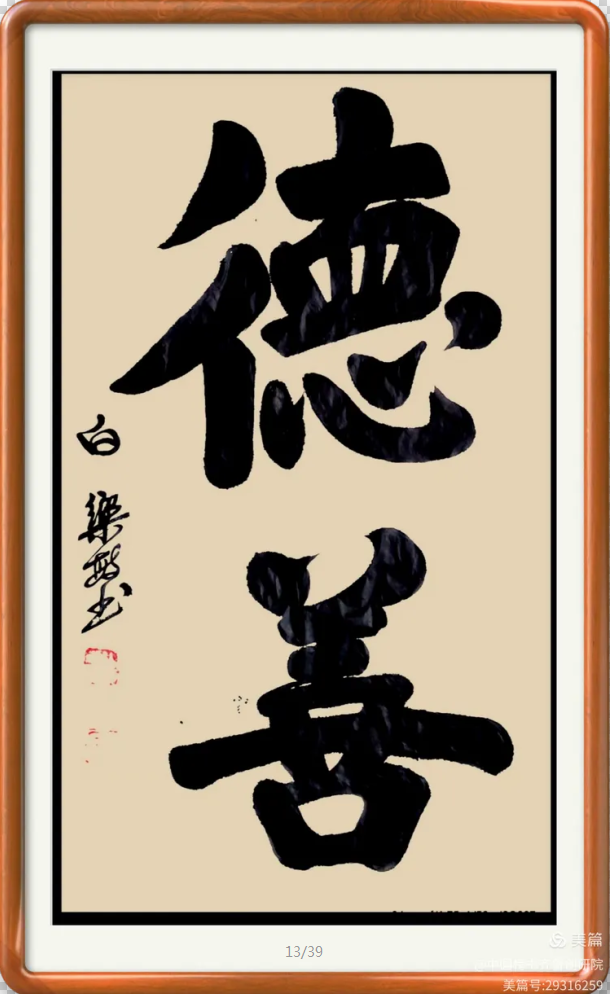 德善
白
樂
書
13/39
美篇
美篇号:29316259